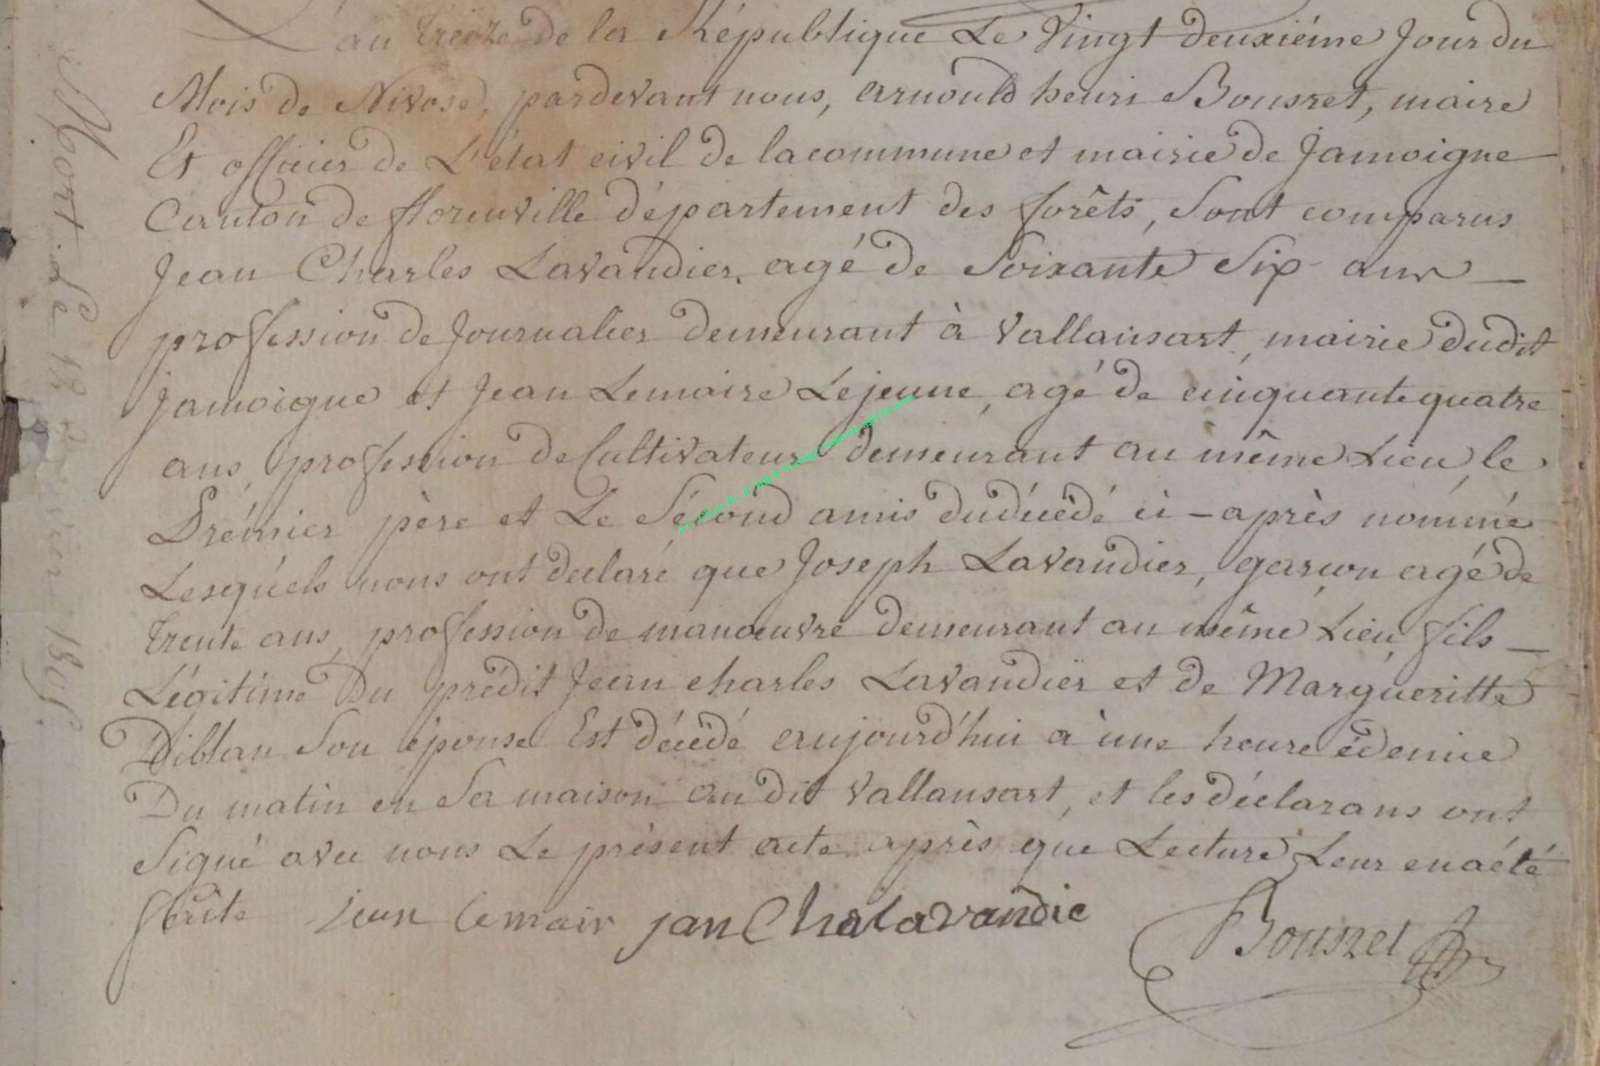 L'an treize de la République Le Vingt deuxiéme Jour du
Mois de Nivose, pardevant nous, arnould henri Bousret, maire
Et officier de L'état civil de lacommune et mairie de Jamoigne
Canton de florenville département des forêts, Sont comparus
Jean Charles Lavandier, agé de Soixante Six ans
profession de Journalier demeurant à Vallansart, mairie dudit
Jamoigne et Jean Lemaire Lejeune, agé de cinquante quatre
ans, profession de Cultivateur demeurant au même Lieu, le
Prémier père et Le Sécond amis dudécédé ci-après nommé
Lesquels nous ont déclaré que Joseph Lavandier, garcon agé de
trente ans, profession de manoeuvre demeurant au même Lieu, fils
Légitime Du prédit Jean charles Lavandier et de Margueritte
Diblan Son épouse Est décédé aujourd'hui à une heure édemie
Du matin en Sa maison au dit Vallansart, et les déclarans ont
Signé avec nous Le présent acte après que Lecture Leur enaété
faite jean lemair jan Cha lavandie Bousret
Mort. Le 12 1805.